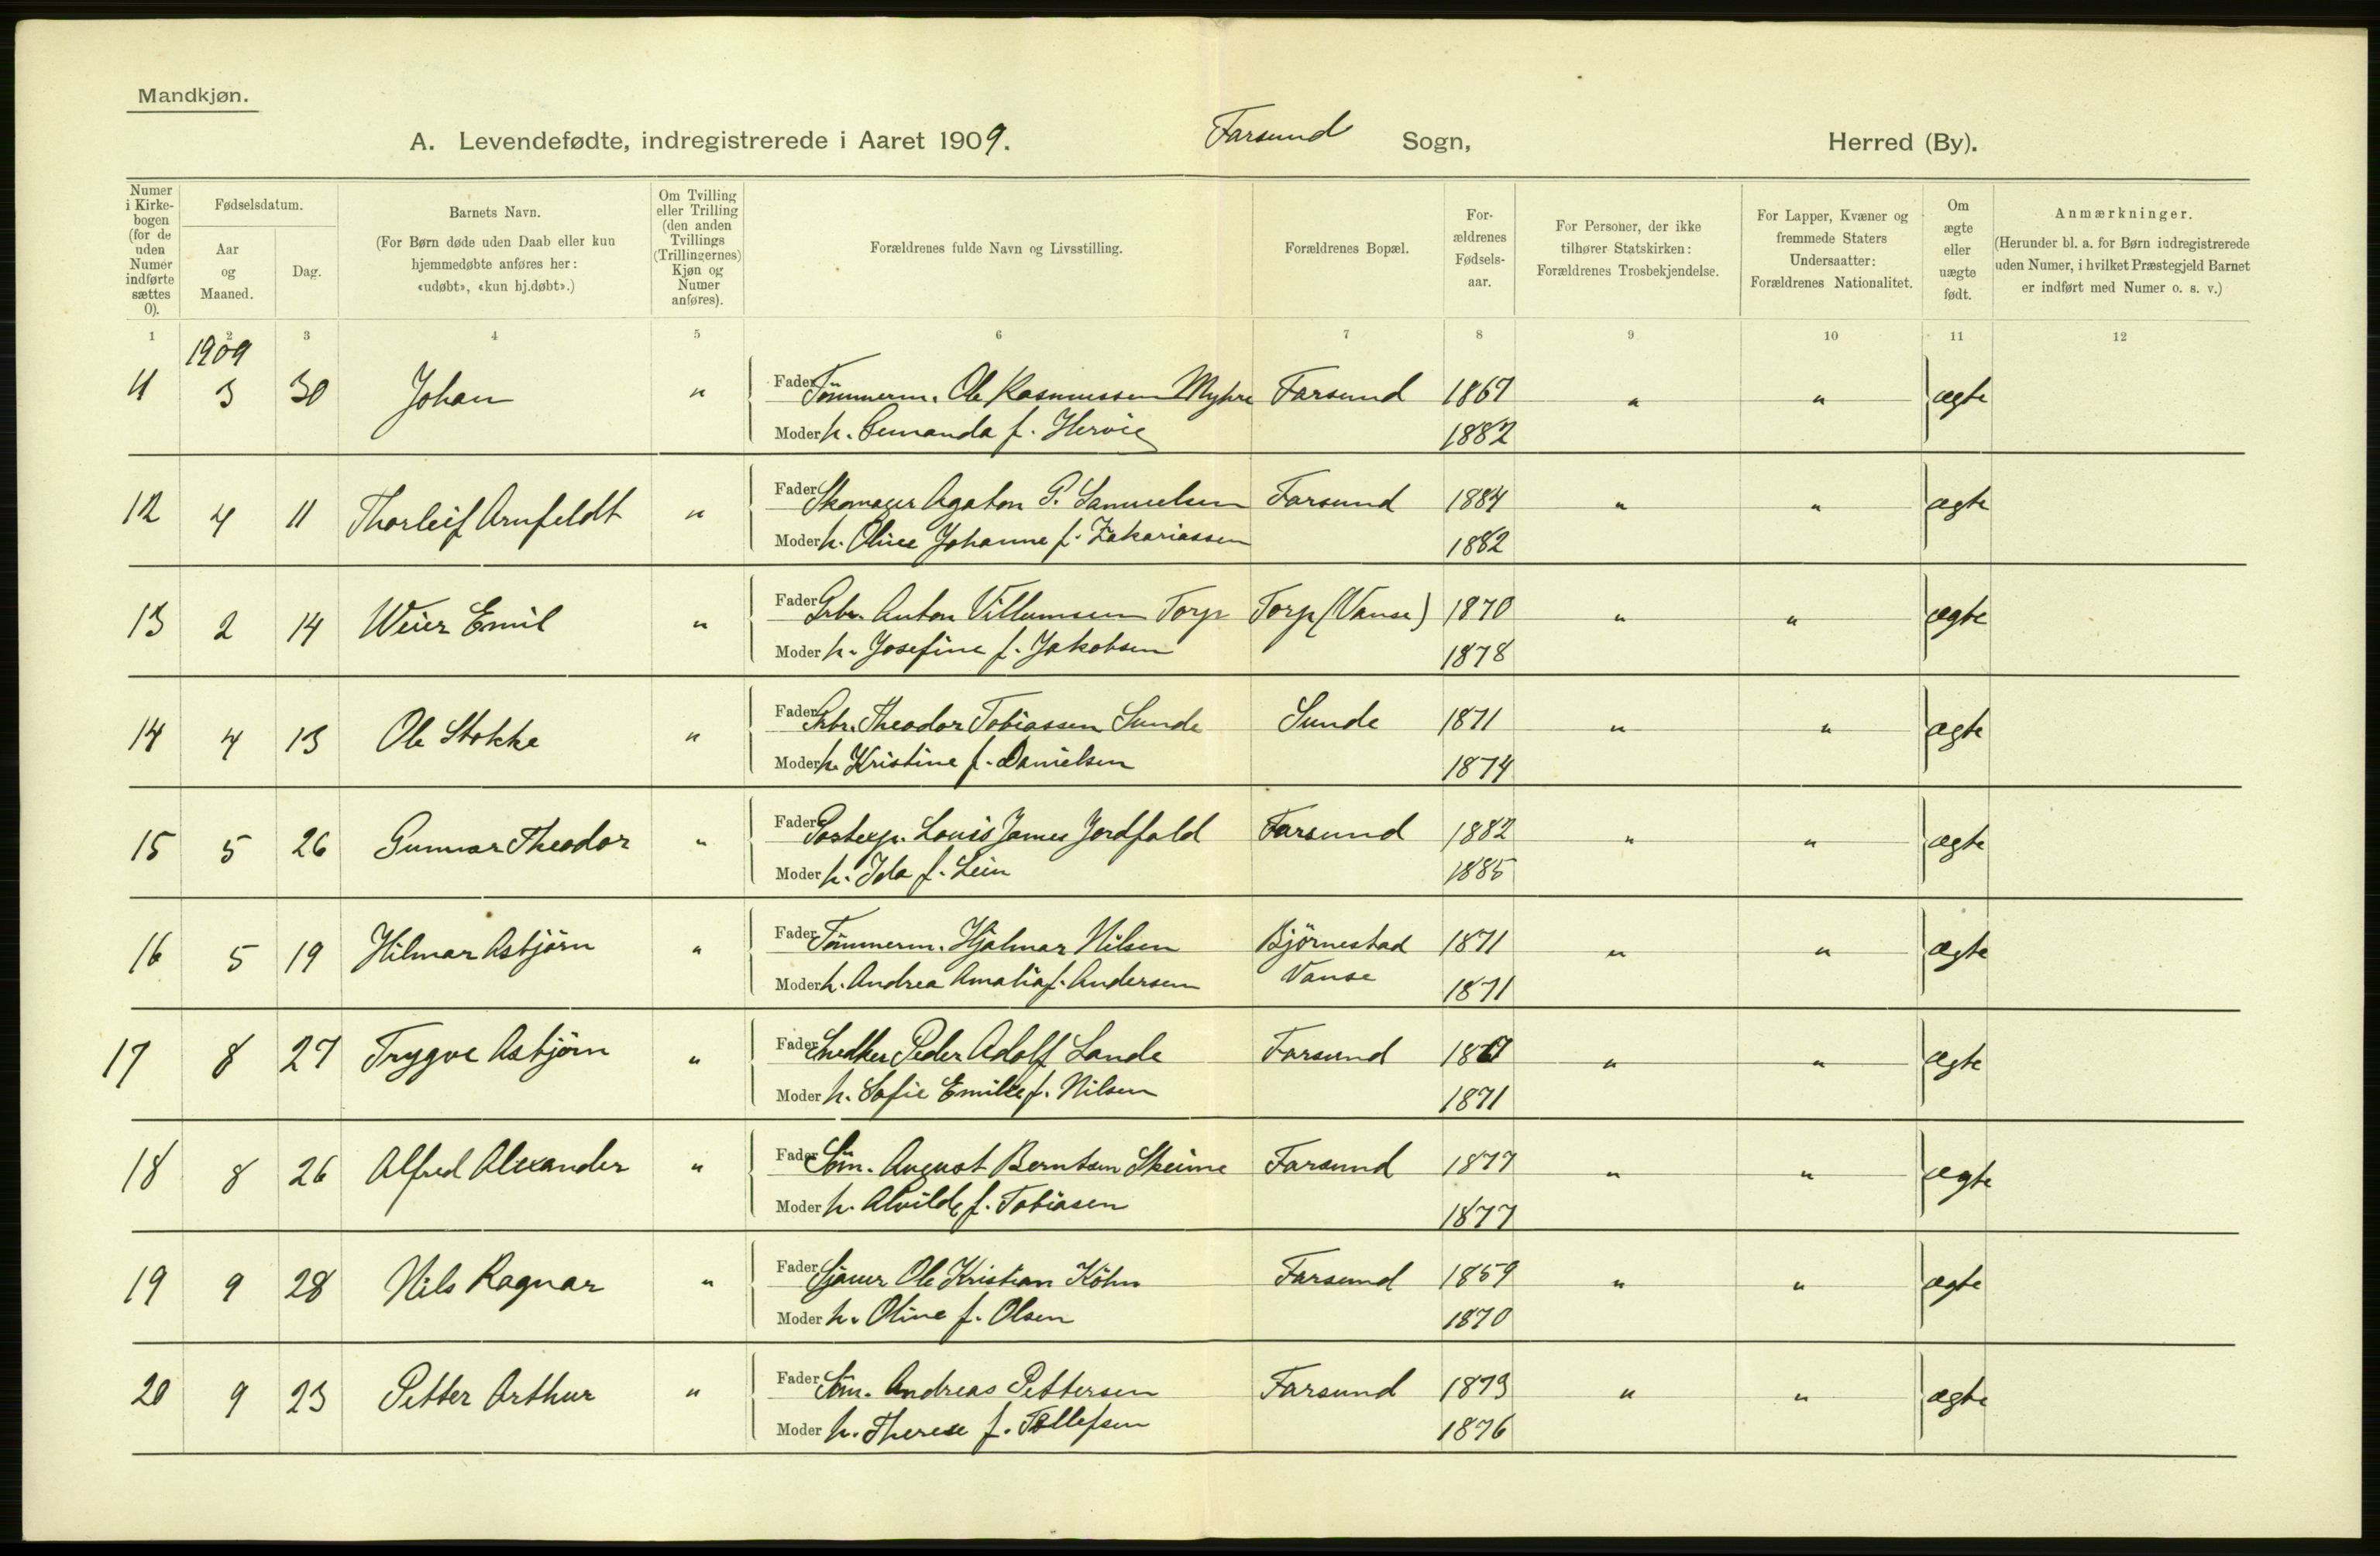 Mandkjøn.
A. Levendefødte, indregistrerede i Aaret 1909. Farsund Sogn, Herred (By).
Numer i Kirkebogen (for de uden Numer indførte sættes 0).
Fødselsdatum.
Aar og Maaned.
Dag.
Barnets Navn.
(For Børn døde uden Daab eller kun hjemmedøbte anføres her: «udøbt», «kun hj.døbt».)
Om Tvilling eller Trilling (den anden Tvillings (Trillingernes) Kjøn og Numer anføres).
Forældrenes fulde Navn og Livsstilling.
Forældrenes Bopæl.
Forældrenes Fødselsaar.
For Personer, der ikke tilhører Statskirken: Forældrenes Trosbekjendelse.
For Lapper, Kvæner og fremmede Staters Undersaatter: Forældrenes Nationalitet.
Om ægte eller uægte født.
Anmærkninger.
(Herunder bl. a. for Børn indregistrerede uden Numer, i hvilket Præstegjeld Barnet er indført med Numer o. s. v.)
1 2 3 4 5 6 7 8 9 10 11 12
1909
11 3 30 Johan " Fader Tömmerm. Ole Rasmussen Myhre Farsund 1867 " " ægte
Moder h. f. 1882
12 4 11 Thorleif Arnfeldt " Fader Skomager Agaton P. Samuelsen Farsund 1884 " " ægte
Moder h. Johanne f. Zakariassen 1882
13 2 14 Weier Emil " Fader Grbr. Anton Villumsen Torp Torp (Vanse) 1870 " " ægte
Moder h. Josefine f. Jakobsen 1878
14 4 13 Ole Stokke " Fader Grbr. Theodor Tobiassen Sunde Sunde 1871 " " ægte
Moder h. Kristine f. Danielsen 1874
15 5 26 Gunnar Theodor " Fader Postexp. Louis James Jordfald Farsund 1882 " " ægte
Moder h. Ida f. Lein 1885
16 5 19 Hilmar Asbjörn " Fader Tömmerm. Hjalmar Nilsen Björnestad 1871 " " ægte
Moder h. Andrea Amalia f. Andersen Vanse 1871
17 8 27 Trygve Asbjörn " Fader Snedker Peder Adolf Lande Farsund " " ægte
Moder h. Sofie Emilie f. Nilsen 1871
18 8 26 Alfred Alexander " Fader Söm. August Berntsen Skeime Farsund 1877 " " ægte
Moder h. Alvilde f. Tobiasen 1877
19 9 28 Nils Ragnar " Fader Ole Kristian Köhn Farsund 1859 " " ægte
Moder h. Oline f. Olsen 1870
20 9 23 Petter Arthur " Fader Söm. Andreas Pettersen Farsund 1873 " " ægte
Moder h. Therese f. Tollefsen 1876